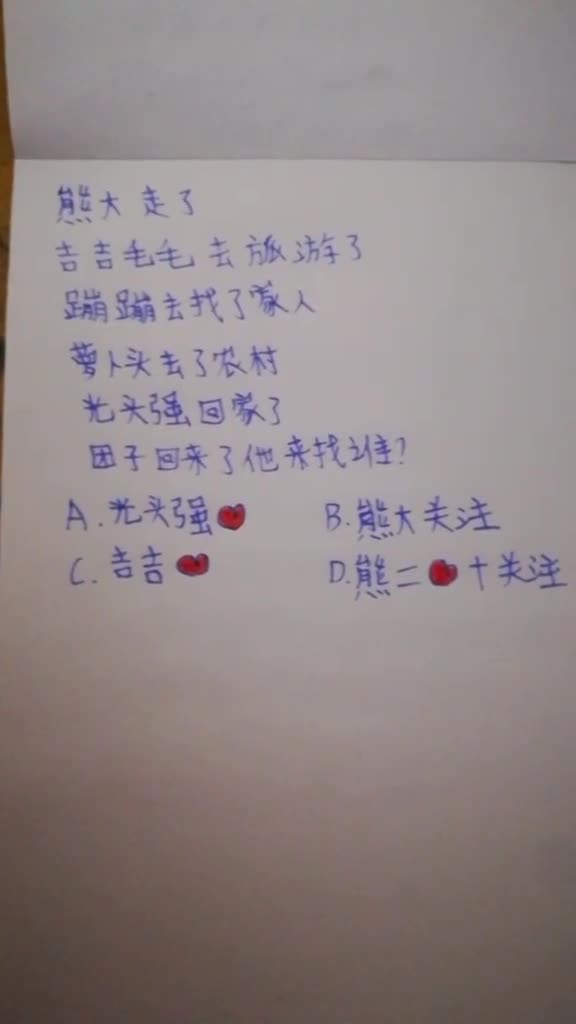 熊大走了
吉吉毛毛去旅游了
蹦蹦去找了家人
萝卜头去了农村
光头强回家了
团子回来了他来找谁?
A.光头强❤ B.熊大关注
C.吉吉❤ D.熊二❤+关注